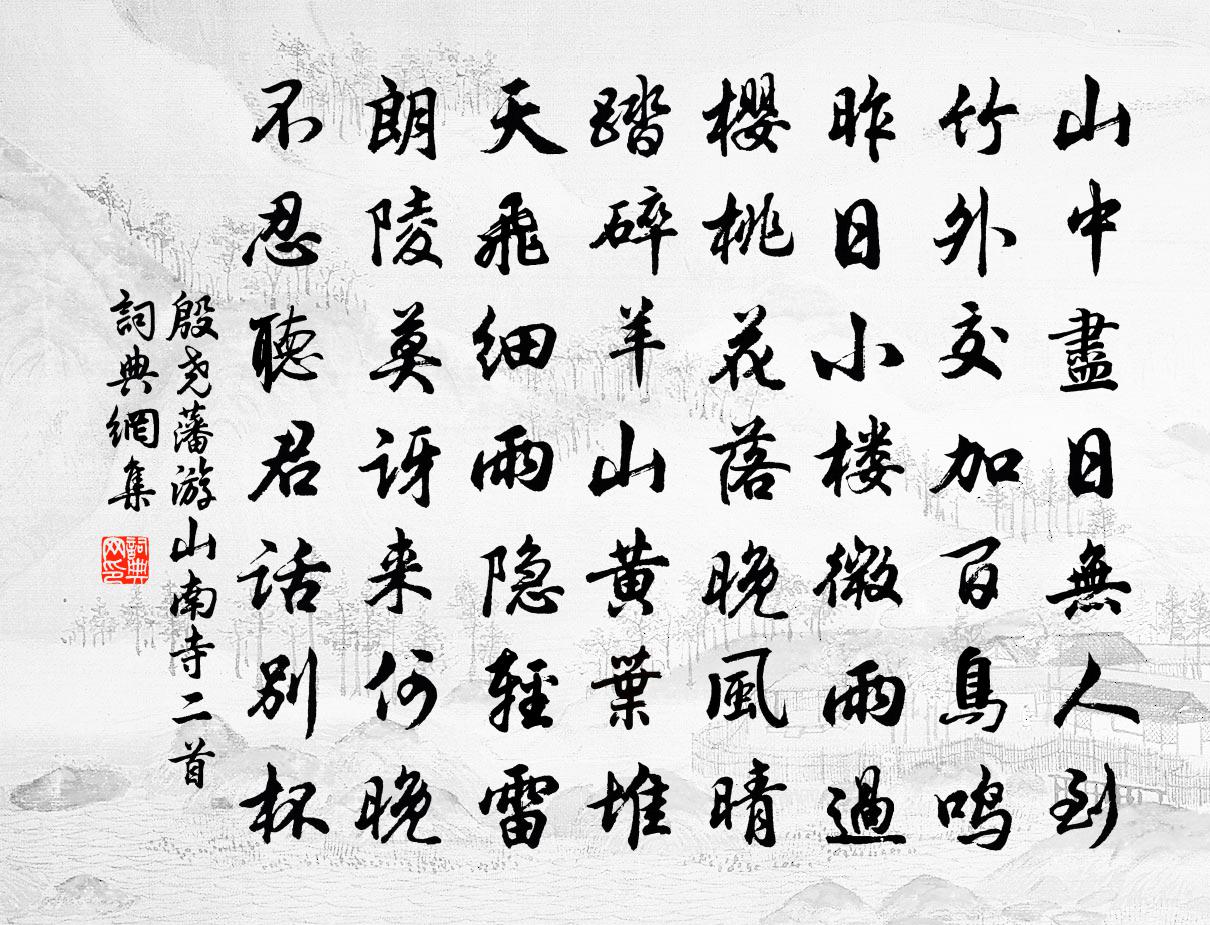 山中盡日無人到
竹外交加百鳥鳴
昨日小楼微雨過
櫻桃花落晚風晴
踏碎羊山黃葉堆
天飛細雨隐輕雷
朗陵莫讶来何晚
不忍聽君話別杯
殷尧藩游山南寺二首
詞典網集
詞典网印